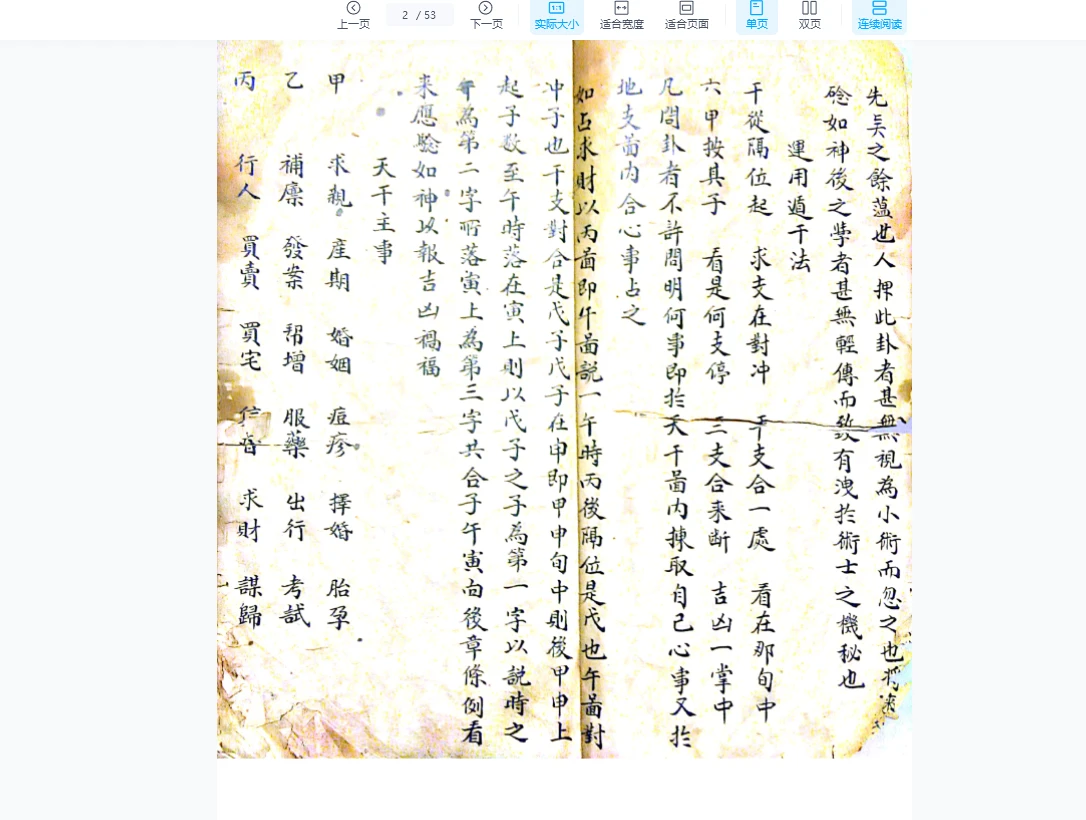 上一页
2 / 53
下一页
1:1
实际大小
适合宽度
适合页面
单页
双页
连续阅读
先吴之餘藴世人捰此卦者甚無視為小術而忽之也
騐如神後之學者甚無輕傳而致有洩扵術士之機秘也
運用遁干法
干從隔位起 求支在對冲 干支合一處 看在那旬中
六甲按具于 看是何支停 三支合来断 吉凶一掌中
凡問卦者不許問明何事即扵天干畨内揀取自己心事又扵
地支畨内合心事占之
如占求財以丙畨即午畨説一午時丙後隔位是戊也午畨對
冲子也干支對合是戊子戊子在申即甲申旬中則後甲申上
起子歌至午時落在寅上則以戊子之子為第一字以説時之
午為第二字所落寅上為第三字共合子午寅向後章條例看
来應驗如神以報吉凶禍福
天干主事
甲 求親 產期 婚姻 痘疹 擇婚 胎孕
乙 補廪 發案 帮增 服藥 出行 考試
丙 行人 買賣 買宅 信音 求財 謀歸